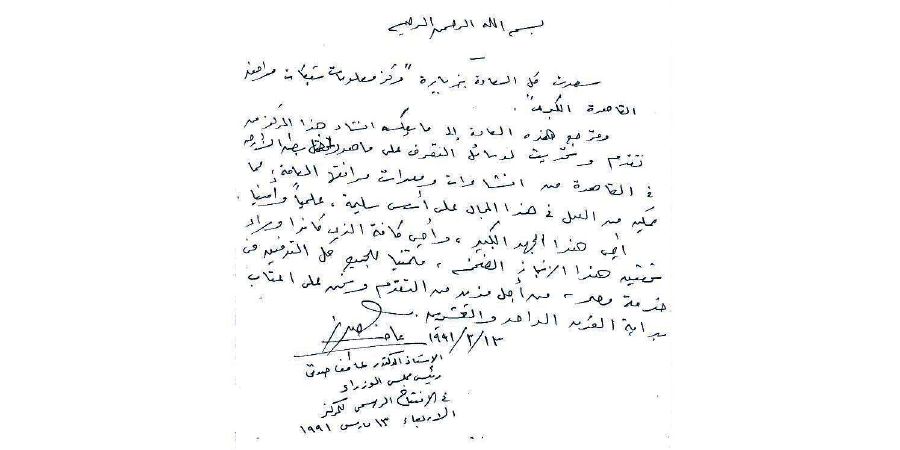 بسم الله الرحمن الرحيم
سعدت كل السعادة بزيارة "مركز معلومات شبكات مرافق
القاهرة الكبرى".
وترجع هذه السعادة إلى ما يعكسه إنشاء هذا المركز من
تقدم وتحديث لوسائل التعرف على ما هو تحت الأرض
في القاهرة من إنشاءات ومعدات مرافقها العامة، مما
يمكن من العمل في هذا المجال على أسس سليمة، علمياً وأمنياً.
أحيي هذا الجهد الكبير، وأحيي كافة الذين كانوا وراء
هذا الإنجاز الضخم، متمنياً للجميع كل التوفيق في
خدمة مصر، من أجل مزيد من التقدم ونحن على أعتاب
بداية القرن الواحد والعشرين.
١٩٩١/٣/١٣
الأستاذ الدكتور عاطف صدقي
رئيس مجلس الوزراء
في الافتتاح الرسمي للمركز
الأربعاء ١٣ مارس ١٩٩١